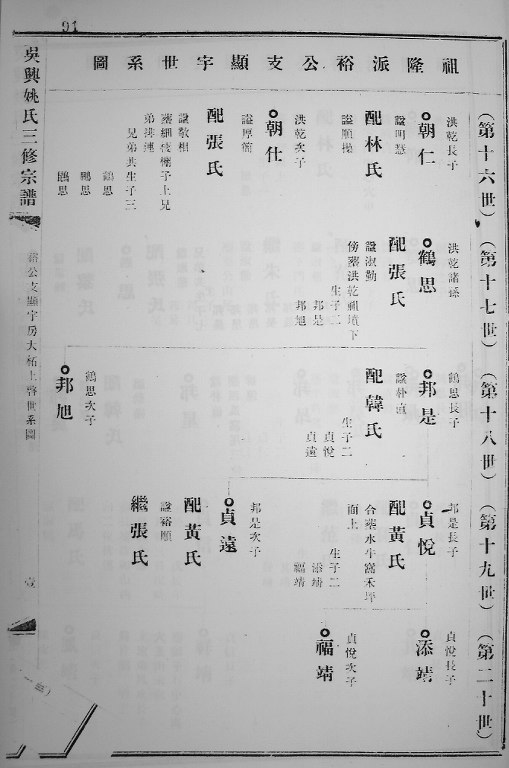 91
祖隆派裕公支顯宇世系圖
(第十六世)
(第十七世)
(第十八世)
(第十九世)
(第二十世)
洪乾長子
朝仁
諡明慧
配林氏
諡順操
洪乾次子
朝仕
諡厚衛
配張氏
諡敬相
弟排連
兄弟共生子三
鶴思
鵬思
洪乾諸孫
鶴思
配張氏
諡淑勤
傍葬洪乾祖墳下
生子二
邦是
邦旭
鶴思長子
邦是
諡朴直
配韓氏
生子二
貞悅
貞遠
鶴思次子
邦旭
邦是長子
貞悅
配黃氏
合葬水牛窩禾坪
面上
生子二
添靖
福靖
邦是次子
貞遠
配黃氏
諡裕順
繼張氏
貞悅長子
添靖
貞悅次子
福靖
吳興姚氏三修宗譜
裕公支顯宇房大柘上啓世系圖
壹